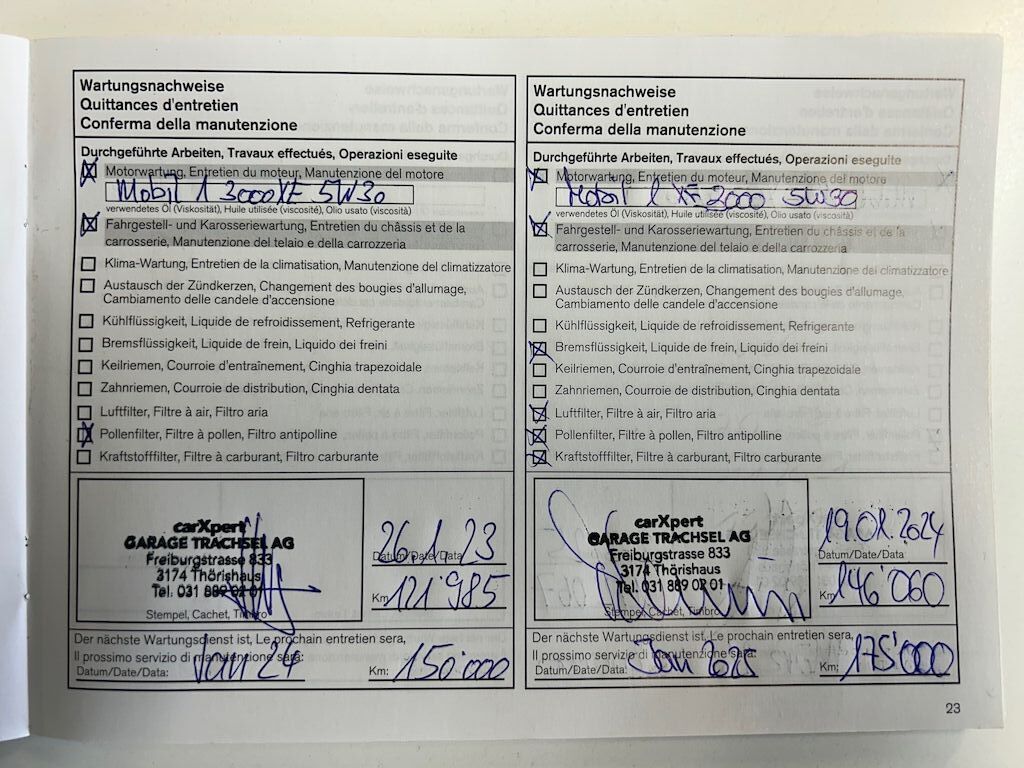 Wartungsnachweise
Quittances d'entretien
Conferma della manutenzione
Durchgeführte Arbeiten, Travaux effectués, Operazioni eseguite
Motorwartung, Entretien du moteur, Manutenzione del motore
Mobil 1 3000 XE 5W30
verwendetes Öl (Viskosität), Huile utilisée (viscosité), Olio usato (viscosità)
Fahrgestell- und Karosseriewartung, Entretien du châssis et de la
carrosserie, Manutenzione del telaio e della carrozzeria
Klima-Wartung, Entretien de la climatisation, Manutenzione del climatizzatore
Austausch der Zündkerzen, Changement des bougies d'allumage,
Cambiamento delle candele d'accensione
Kühlflüssigkeit, Liquide de refroidissement, Refrigerante
Bremsflüssigkeit, Liquide de frein, Liquido dei freini
Keilriemen, Courroie d'entraînement, Cinghia trapezoidale
Zahnriemen, Courroie de distribution, Cinghia dentata
Luftfilter, Filtre à air, Filtro aria
Pollenfilter, Filtre à pollen, Filtro antipolline
Kraftstofffilter, Filtre à carburant, Filtro carburante
carXpert
GARAGE TRACHSEL AG
Freiburgstrasse 833
3174 Thörishaus
Tel. 031 889 02 01
Stempel, Cachet, Timbro
26.1.23
Datum/Date/Data
Km 121'985
Der nächste Wartungsdienst ist, Le prochain entretien sera,
Il prossimo servizio di manutenzione sarà:
Datum/Date/Data: Jan 24 Km: 150'000
Wartungsnachweise
Quittances d'entretien
Conferma della manutenzione
Durchgeführte Arbeiten, Travaux effectués, Operazioni eseguite
Motorwartung, Entretien du moteur, Manutenzione del motore
Mobil 1 XE 2000 5W30
verwendetes Öl (Viskosität), Huile utilisée (viscosité), Olio usato (viscosità)
Fahrgestell- und Karosseriewartung, Entretien du châssis et de la
carrosserie, Manutenzione del telaio e della carrozzeria
Klima-Wartung, Entretien de la climatisation, Manutenzione del climatizzatore
Austausch der Zündkerzen, Changement des bougies d'allumage,
Cambiamento delle candele d'accensione
Kühlflüssigkeit, Liquide de refroidissement, Refrigerante
Bremsflüssigkeit, Liquide de frein, Liquido dei freini
Keilriemen, Courroie d'entraînement, Cinghia trapezoidale
Zahnriemen, Courroie de distribution, Cinghia dentata
Luftfilter, Filtre à air, Filtro aria
Pollenfilter, Filtre à pollen, Filtro antipolline
Kraftstofffilter, Filtre à carburant, Filtro carburante
carXpert
GARAGE TRACHSEL AG
Freiburgstrasse 833
3174 Thörishaus
Tel. 031 889 02 01
Stempel, Cachet, Timbro
19.01.2024
Datum/Date/Data
Km 146'060
Der nächste Wartungsdienst ist, Le prochain entretien sera,
Il prossimo servizio di manutenzione sarà:
Datum/Date/Data: Jan 2025 Km: 175'000
23